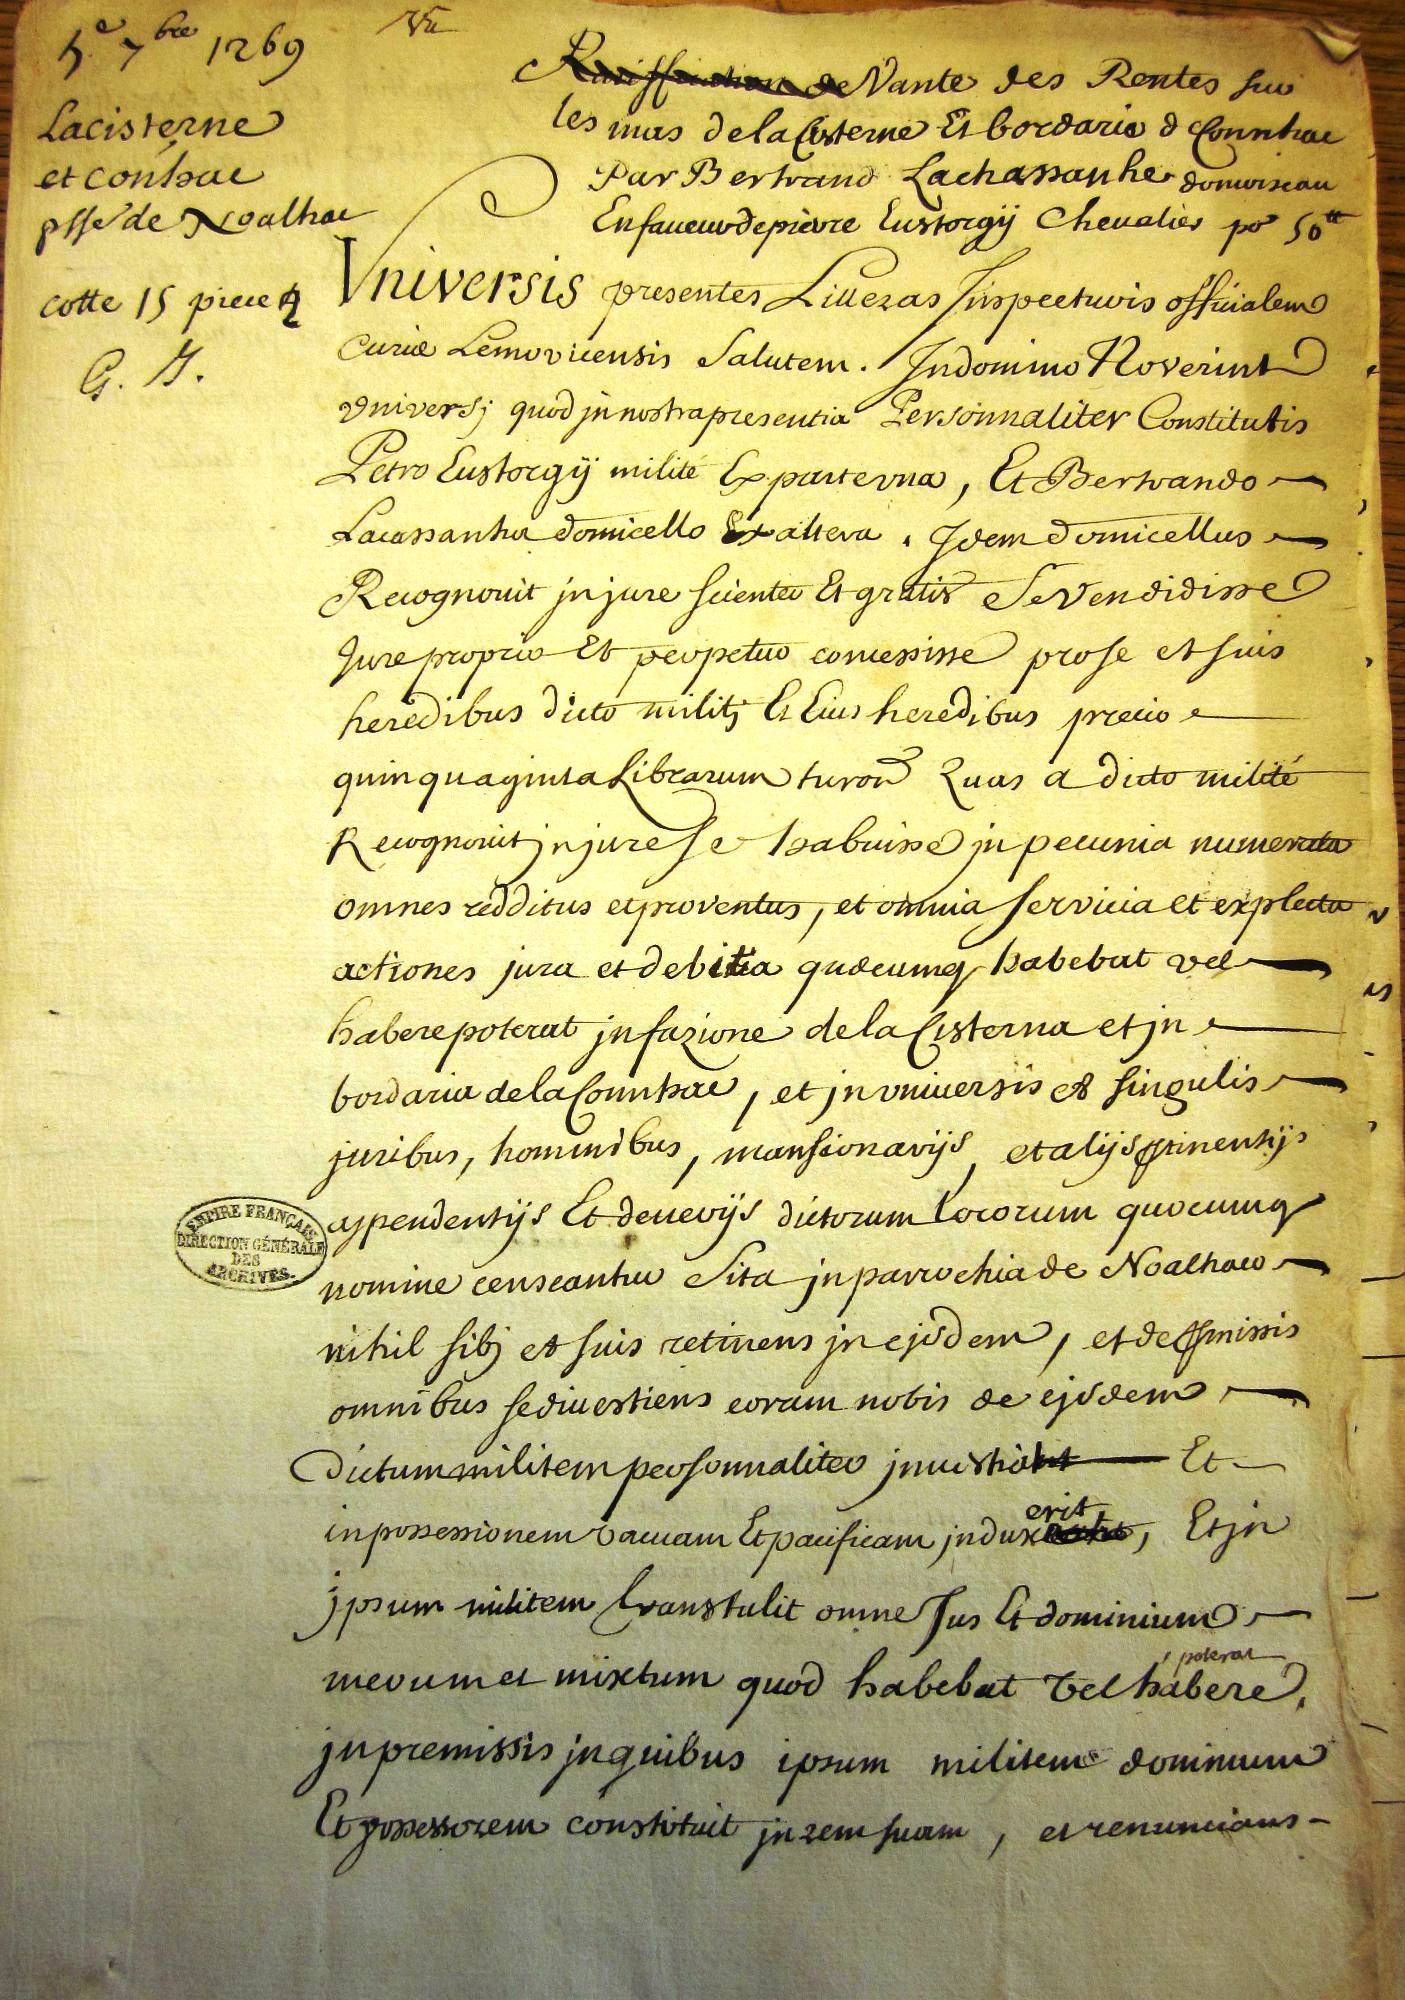 5e 7bre 1269
Vu
Lacisterne
et contrac
psse de Noalhac
cotte 15 piece 4
G. J.
Ratiffication de Vante des Rentes sur
les mas de la Cisterne Et bordaria d Connhac
Par Bertrand Lachassanhe domoiseau
En faueur de pierre Eustorgij Cheualier po 50tt
Vniversis presentes Litteras Inspecturis officialem
Curiæ Lemovicensis Salutem. In domino Noverint
vniversj quod jn nostra presentia Personnaliter Constitutis
Petro Eustorgij milité Ex parte vna, Et Bertrando
Lacassanha domicello Ex altera. Idem domicellus
Recognouit jn jure scienter Et gratis Se Vendidisse
Jure proprio Et perpetuo concessisse pro se et suis
heredibus dicto militj Et Eius heredibus precio
quinquaginta Librarum turon Quas a dicto milité
Recognouit jn jure se habuisse jn pecunia numerata
omnes redditus et proventus, et omnia servicia et explecta
actiones jura et debita quæcumq habebat vel
habere poterat jn fazione de la Cisterna et jn
bordaria de la Connhac, et jn vniuersis et singulis
juribus, hominibus, mansionarijs, et alijs ptinentijs
appendentijs Et deuerijs dictorum Locorum quocumq
nomine censeantur Sita jn parrochia de Noalhaco
nihil sibj et suis retinens jn ejsdem, et de pmissis
omnibus se diuestiens coram nobis de ejsdem
Dictum militem personnaliter jnuestiait Et
in possessionem vacuam Et pacificam jndux erit, Et jn
jpsum militem transtulit omne Jus Et dominium
merum et mixtum quod habebat Vel habere poterat
jn premissis jn quibus ipsum militem dominum
Et possessorem constituit jn rem suam, et renuncians
EMPIRE FRANÇAIS
DIRECTION GÉNÉRALE
DES
ARCHIVES.